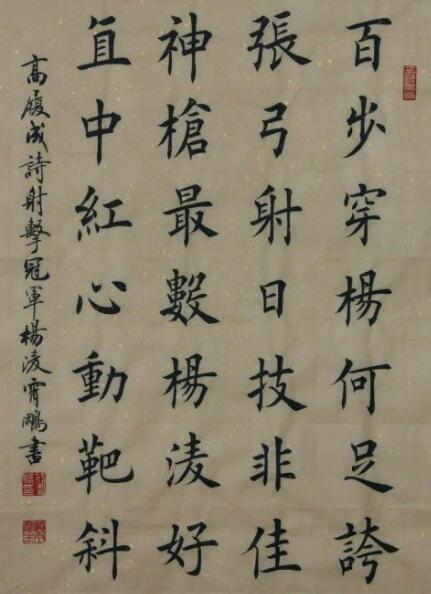 百步穿楊何足誇
張弓射日技非佳
神槍最數楊淩好
直中紅心動靶斜
高履成詩射擊冠軍楊淩宵鵬書